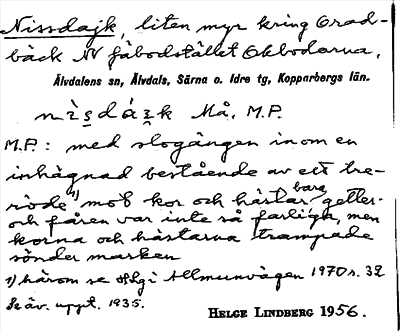 Nissdajk, liten myr kring Orad-
bäck NV fäbodstället Okbodarna.
Älvdalens sn, Älvdals, Särna o. Idre tg, Kopparbergs län.
nìsdáɪ̯k Må, M.P.
M.P.: med slogången inom en
inhägnad bestående av ett tre-
röde 1) mot kor och hästar, getter-
bara
och fåren var inte så farliga, men
korna och hästarna trampade
sönder marken
1) härom se Hlg: Allmunvägen 1970 s. 32
Se äv. uppt. 1935.
HELGE LINDBERG 1956.